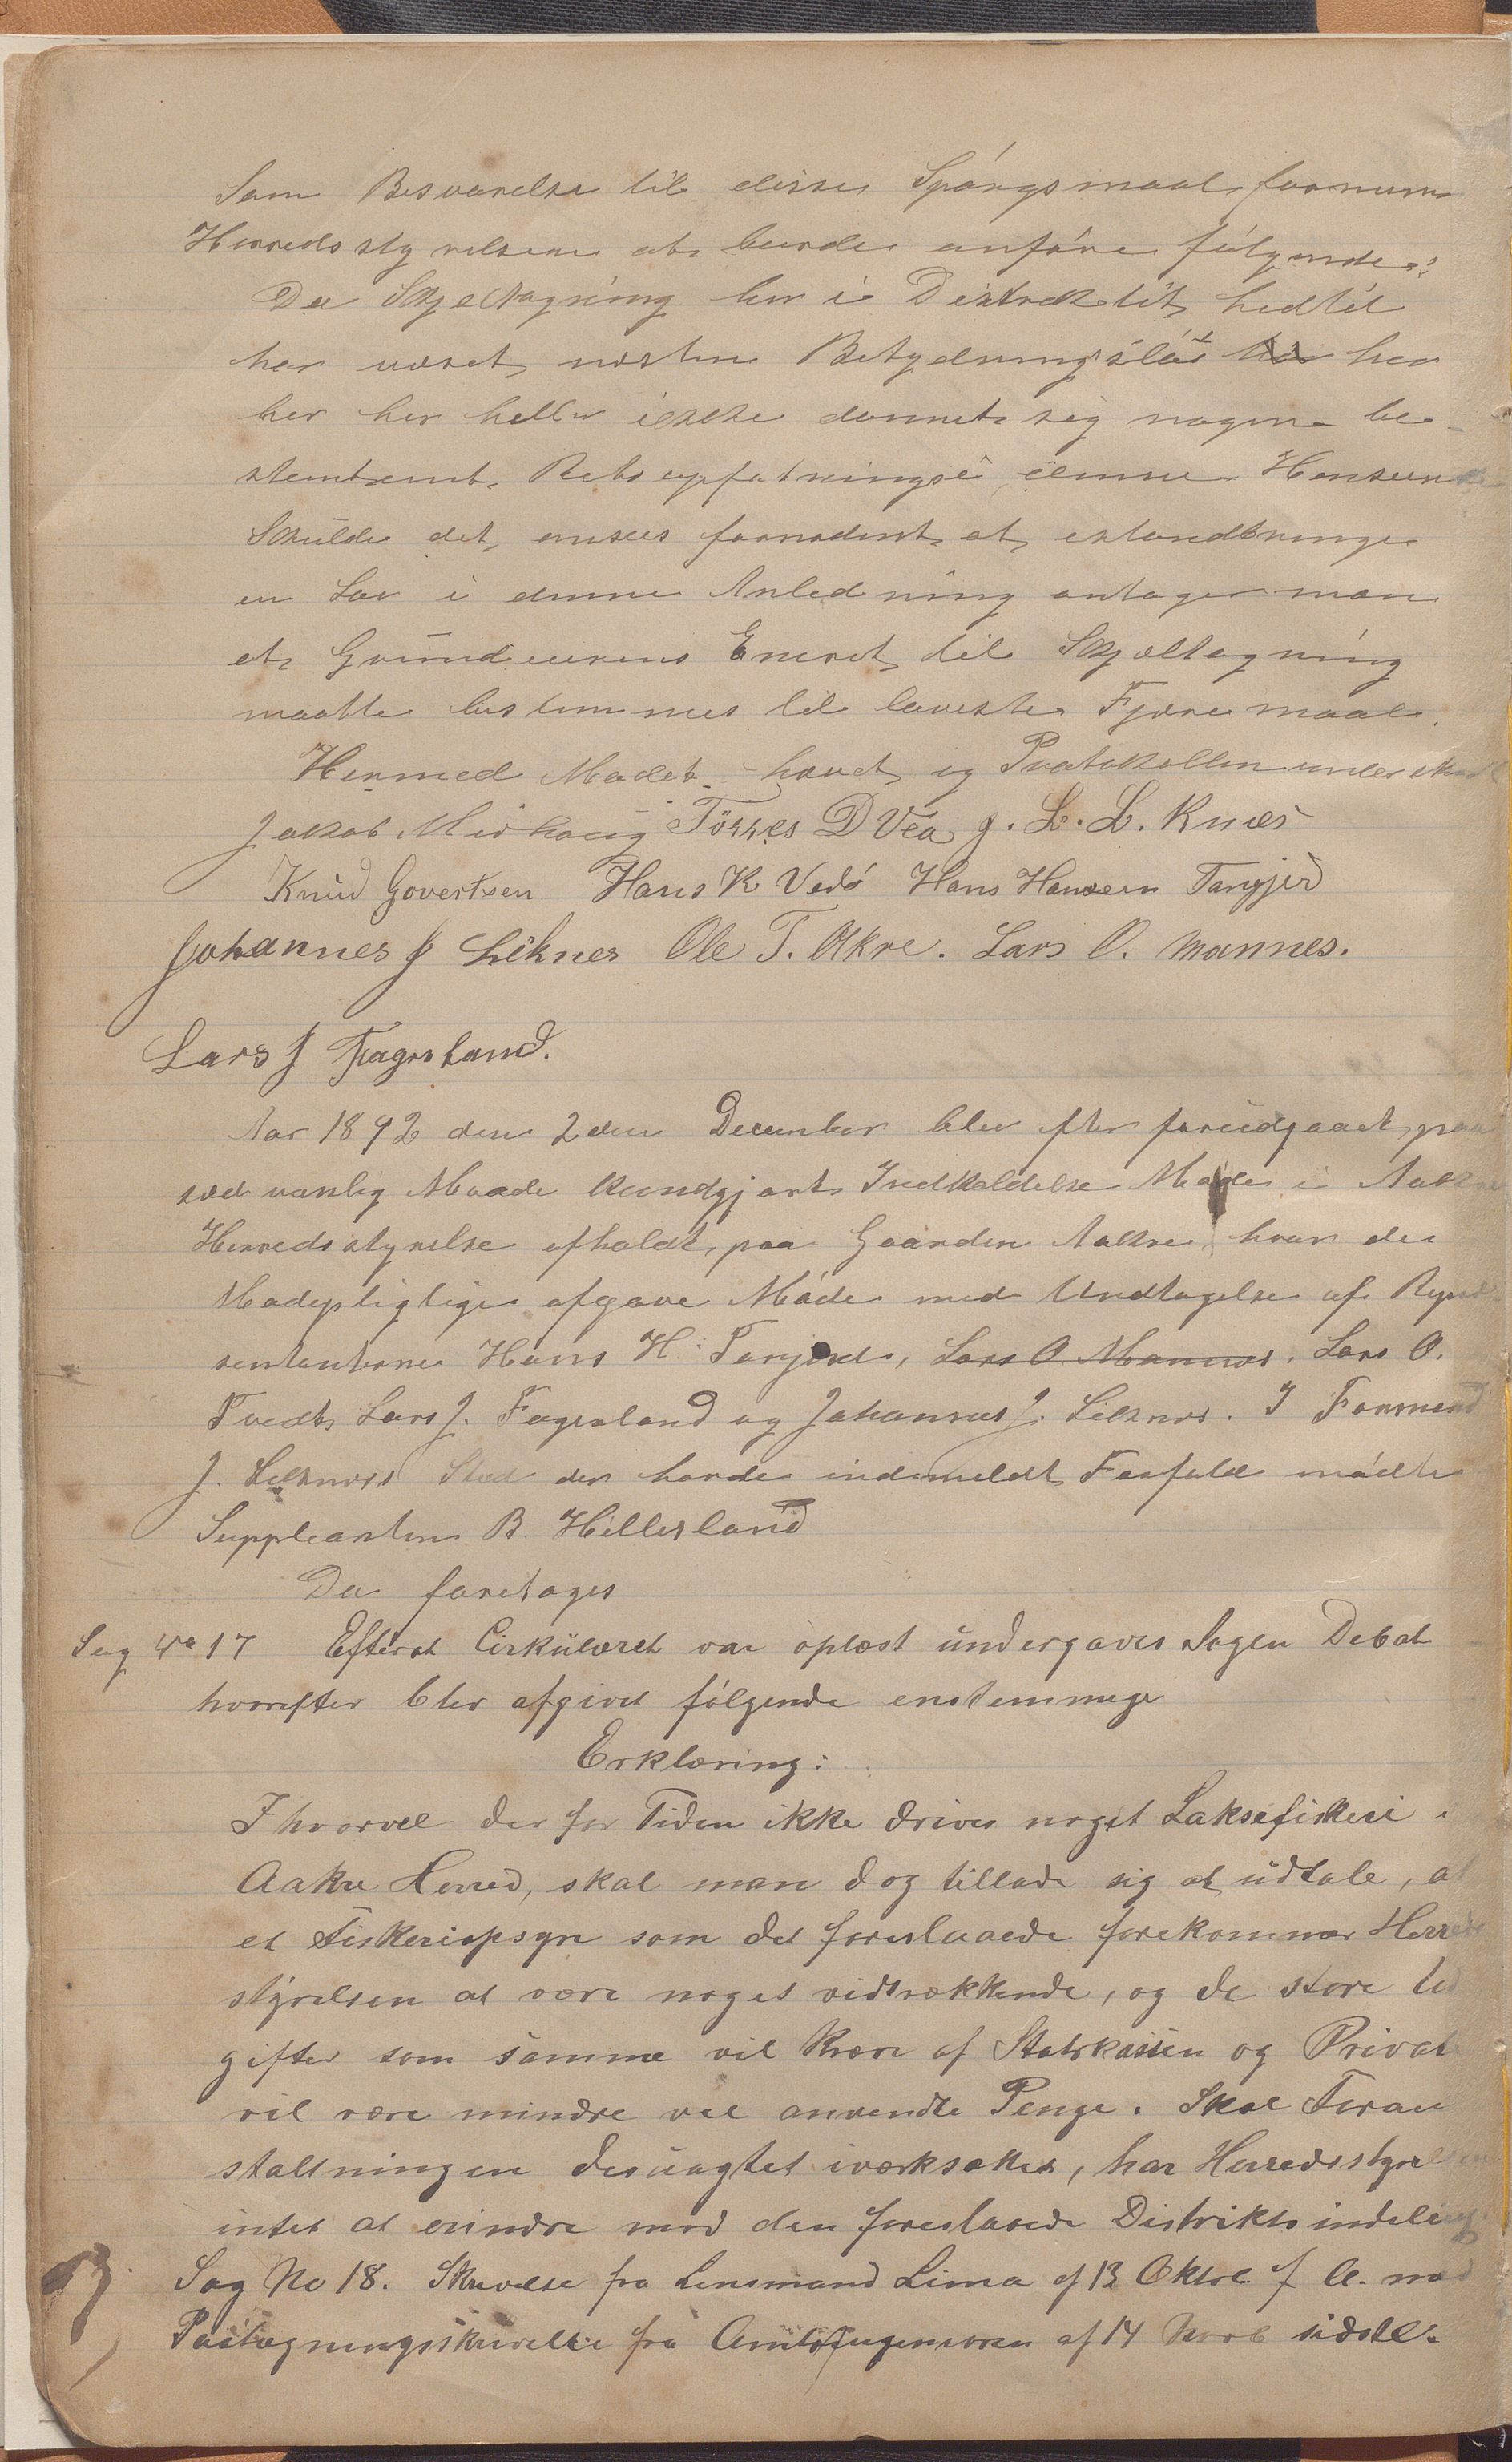 Som Besvarelse til disse Spörgsmaal formener
Herredsstyrelsen at burde anföre fölgende:
Da Skjeltagning her i Distriktet hidtil
har været næsten Betydningslöst har her
her heller ikke dannet sig nogen be-
stemt Retsopfatning i denne Henseende
Skulde det ansees fornødent at istandbringe
en Lov i denne Anledning antager man
at Grundeierens Eneret til Skjæltagning
maatte bestemmes til laveste Fjæremaal.
Hermed Mødet hævet og Protokollen underskrevet
Jakob Midhaug Törres D Vea J. L. L. Knæs
Knud Govertsen Hans K Vedö Hans Hansen Tangjerd
Johannes J Liknes Ole T. Akre. Lars O. Mannes.
Lars J Fagerland.
Aar 1892 den 2den December blev efter forudgaaet paa
sædvanlig Maade kundgjort Indkaldelse Möde i Aakre
Herredsstyrelse afholdt paa Gaarden Aakre hvor de
Mödepligtige afgave Möde med Undtagelse af Repræ-
sentanterne Hans H. Tangjerd, Lars O Mannes. Lars O.
Tvedt Lars J. Fagerland og Johannes J. Liknes. I Formand
J. Liknes Sted der havde indmeldt Forfald mödte
Suppleanten B. Hillesland
Da foretoges
Sag No 17 Efterat Cirkulæret var oplæst undergaves Sagen Debat
hvorefter blev afgivet fölgende enstemmige
Erklæring:
Ihvorvel der for Tiden ikke drives noget Laksefiskeri i
Aakre Herred, skal man dog tillade sig at udtale, at
et Fiskeriopsyn som det foreslaaede forekommer Herreds
styrelsen at være noget vidtrækkende, og de store Ud
gifter som samme vil kræve af Statskassen og Private
vil være mindre vel anvendte Penge. Skal Foran
staltningen desuagtet iværksættes, har Herredsstyrelsen
intet at erindre mod den foreslaaede Distriktsindeling.
Sag No 18. Skrivelse fra Lensmand Lima af 13 Oktbr f A. med
Paategningsskrivelse fra Amtsingeniøren af 14 Novb sidstl.